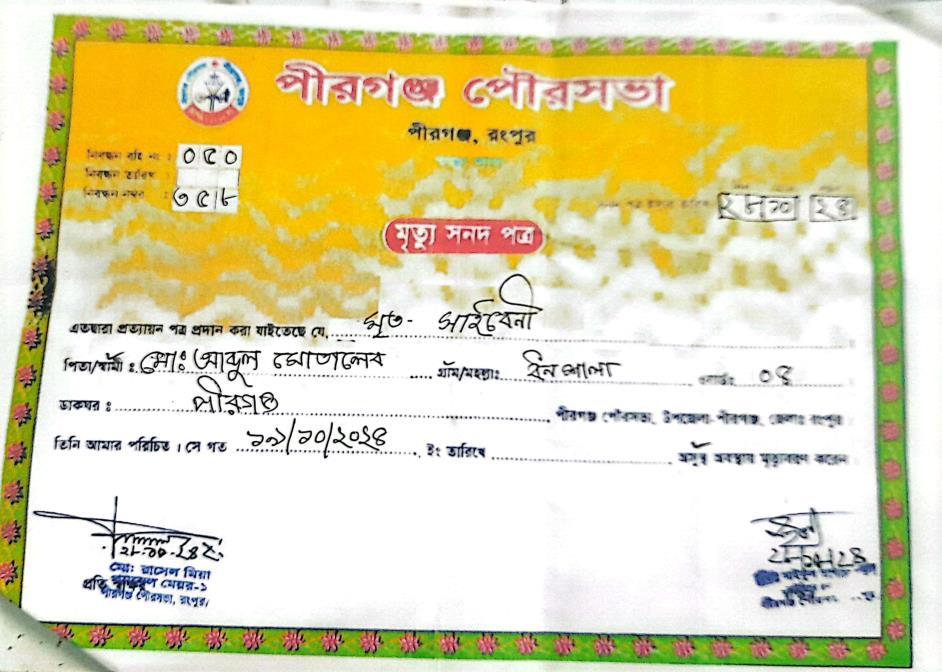 পীরগঞ্জ পৌরসভা
পীরগঞ্জ, রংপুর
নিবন্ধন বহি নং : ০৫০
নিবন্ধন তারিখ :
নিবন্ধন নম্বর : ৩৫৮
২৮ ১০ ২৪
মৃত্যু সনদ পত্র
এতদ্বারা প্রত্যায়ন পত্র প্রদান করা যাইতেছে যে, মৃত-
পিতা/স্বামী : মোঃ আব্দুল মোতালেব গ্রাম/মহল্লাঃ ওয়ার্ডঃ ০৪
ডাকঘর : পীরগঞ্জ পীরগঞ্জ পৌরসভা, উপজেলা-পীরগঞ্জ, জেলাঃ রংপুর।
তিনি আমার পরিচিত। সে গত ১৯/১০/২০২৪, ইং তারিখে অসুস্থ অবস্থায় মৃত্যুবরণ করেন।
মোঃ রাসেল মিয়া
মেয়র-১
পীরগঞ্জ পৌরসভা, রংপুর।